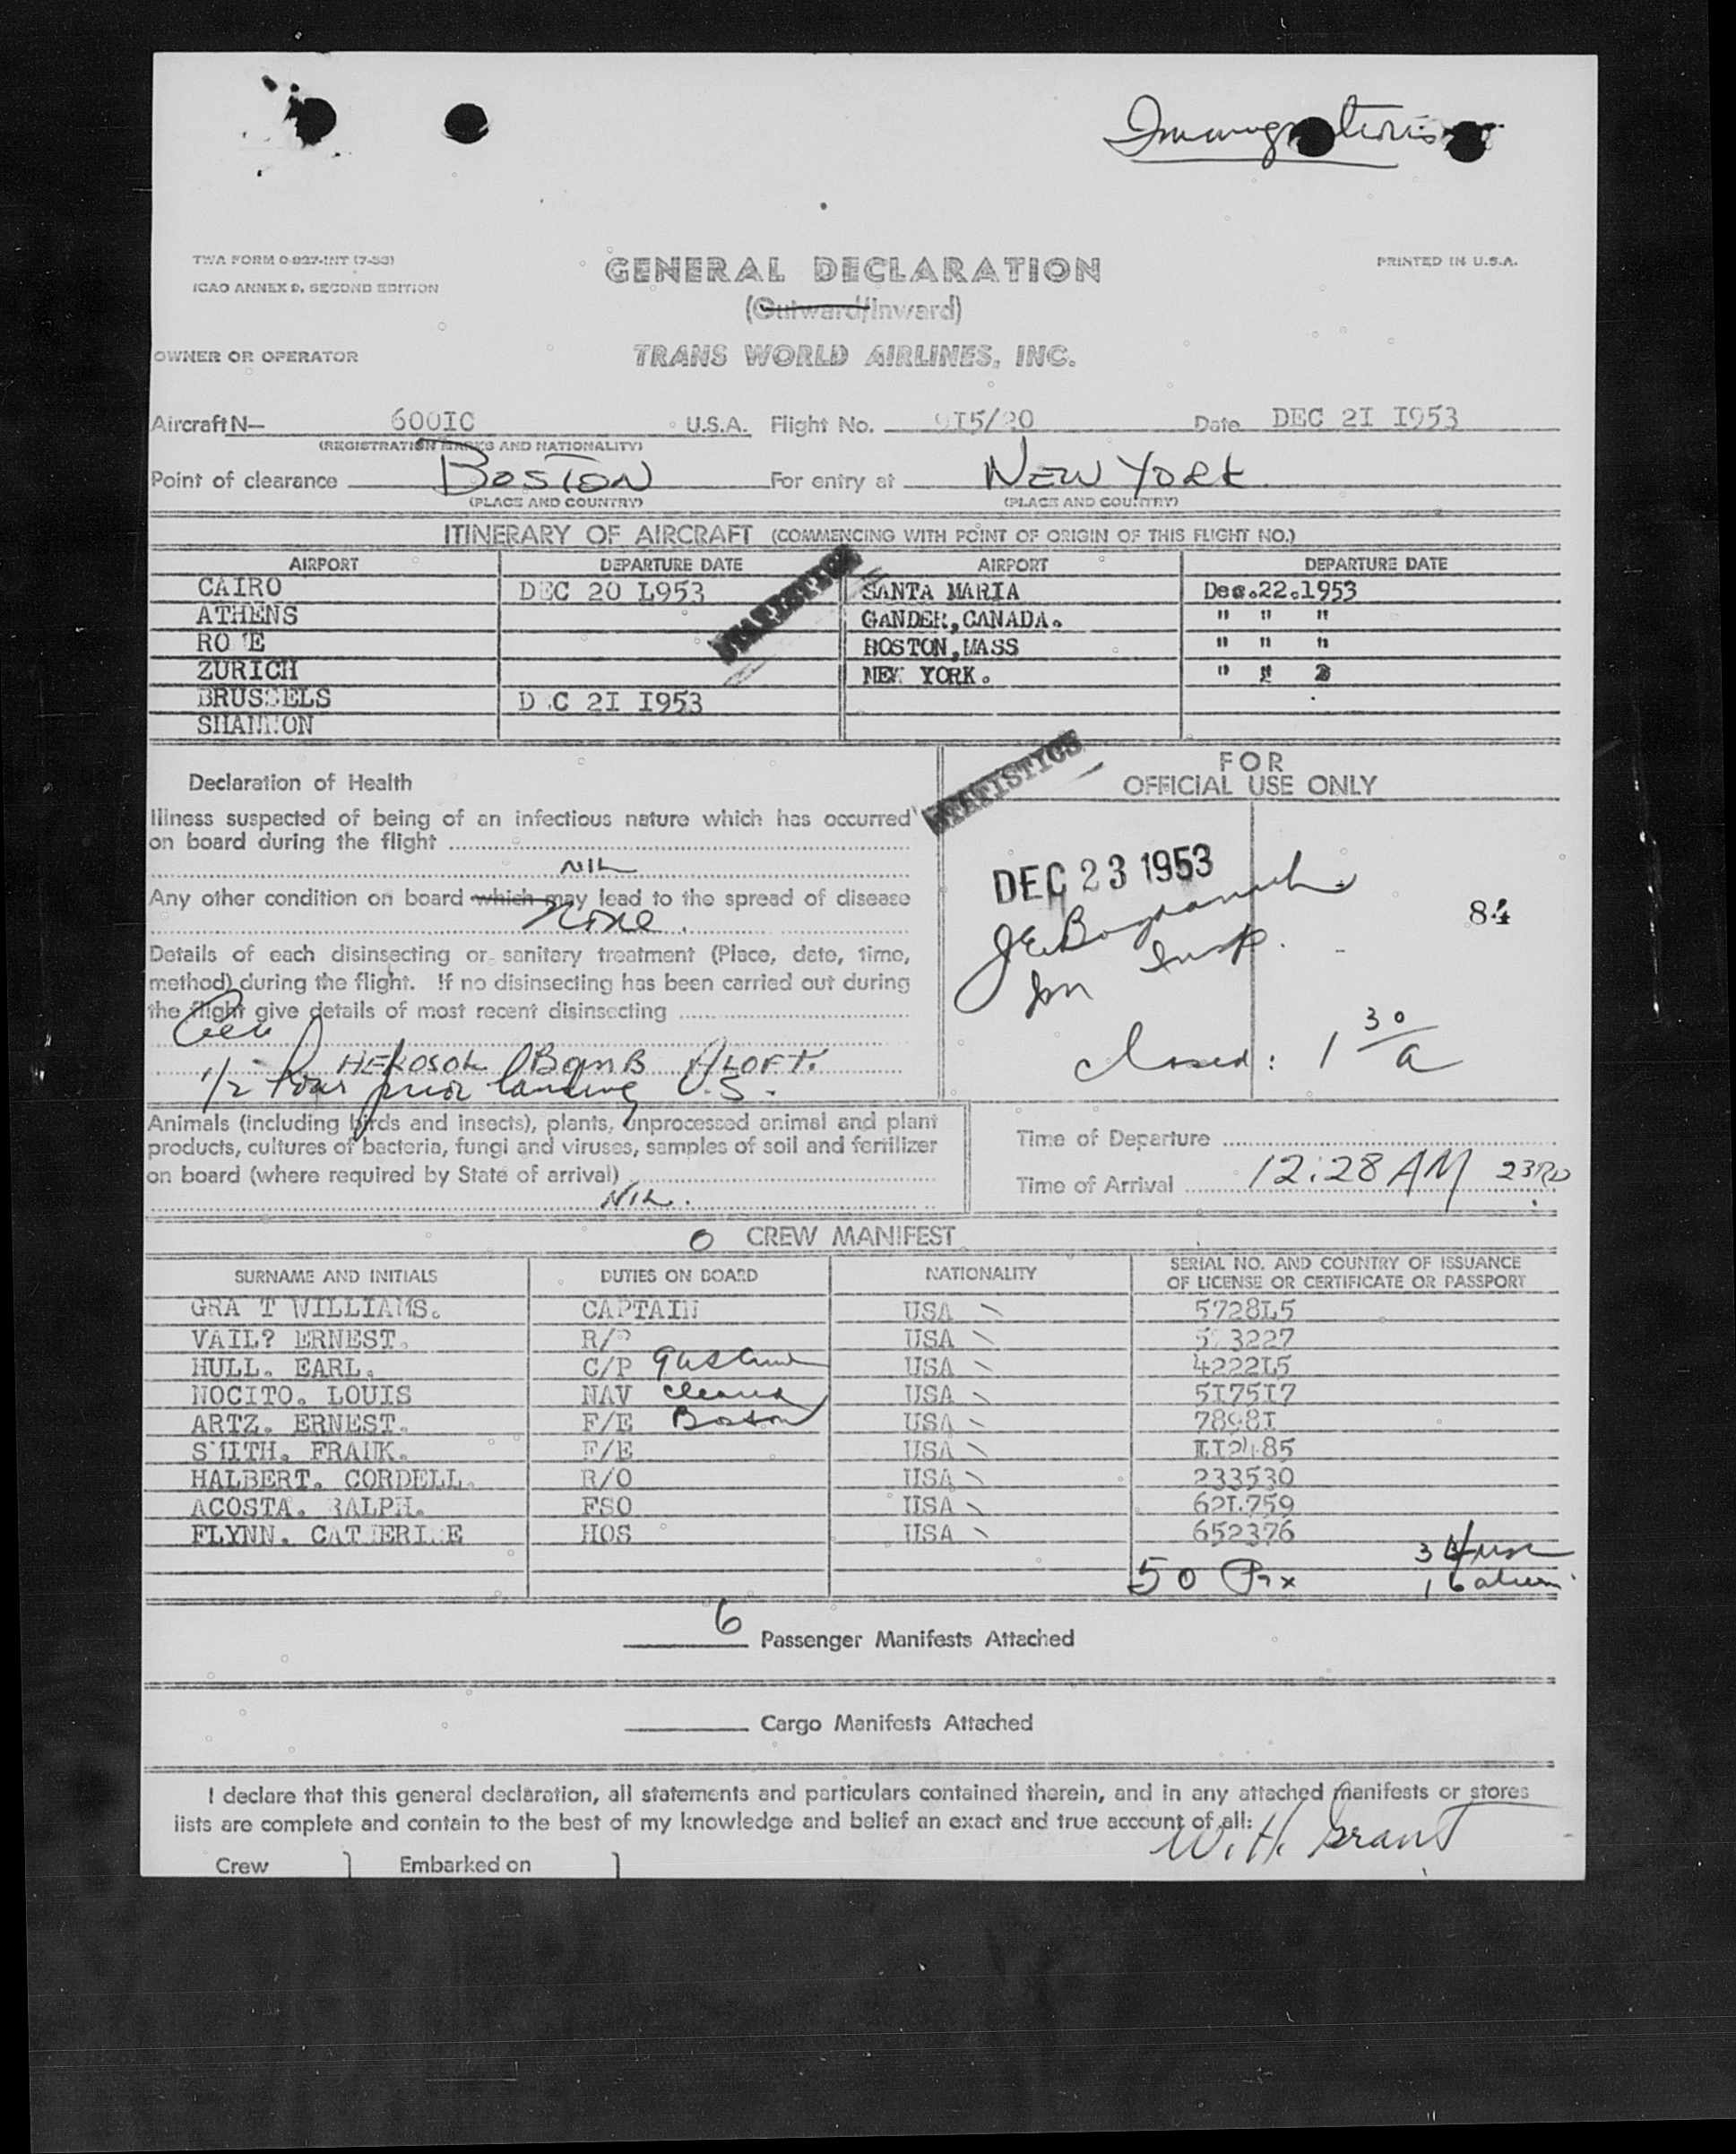 Immigration
TWA FORM O-927-INT (7-53)
ICAO ANNEX 9, SECOND EDITION
GENERAL DECLARATION
PRINTED IN U.S.A.
(Outward/Inward)
OWNER OR OPERATOR
TRANS WORLD AIRLINES, INC.
Aircraft N— 600IC U.S.A. Flight No. 9I5/20 Date DEC 2I I953
(REGISTRATION MARKS AND NATIONALITY)
Point of clearance BOSTON For entry at NEW YORK
(PLACE AND COUNTRY) (PLACE AND COUNTRY)
ITINERARY OF AIRCRAFT (COMMENCING WITH POINT OF ORIGIN OF THIS FLIGHT NO.)
AIRPORT DEPARTURE DATE AIRPORT DEPARTURE DATE
CAIRO DEC 20 L953 SANTA MARIA Dec.22.1953
ATHENS GANDER,CANADA. " " "
RO E BOSTON,MASS " " "
ZURICH NEW YORK. "
BRUSSELS D C 2I I953
SHANNON
STATISTICS
STATISTICS
Declaration of Health
Illness suspected of being of an infectious nature which has occurred
on board during the flight
NIL
Any other condition on board which may lead to the spread of disease
None.
Details of each disinsecting or sanitary treatment (Place, date, time,
method) during the flight. If no disinsecting has been carried out during
the flight give details of most recent disinsecting
BOMB ALOFT.
1/2 hour prior landing U.S.
FOR
OFFICIAL USE ONLY
DEC 23 1953
84
Im Insp.
Closed: 1 30 a
Animals (including birds and insects), plants, unprocessed animal and plant
products, cultures of bacteria, fungi and viruses, samples of soil and fertilizer
on board (where required by State of arrival)
NIL.
Time of Departure
Time of Arrival 12:28 AM 23RD
O CREW MANIFEST
SURNAME AND INITIALS DUTIES ON BOARD NATIONALITY SERIAL NO. AND COUNTRY OF ISSUANCE
OF LICENSE OR CERTIFICATE OR PASSPORT
GRA T WILLIAMS. CAPTAIN USA 5728L5
VAIL? ERNEST. R/P USA 5 3227
HULL. EARL. C/P USA 4222L5
NOCITO. LOUIS NAV cleared USA 5I75I7
ARTZ. ERNEST. F/E Boston USA 7898I
SMITH. FRANK. F/E USA
HALBERT. CORDELL. R/O USA 233530
ACOSTA. RALPH. FSO USA 62L759
FLYNN. CATHERINE HOS USA 652376
50 Pax
16 alien
6
Passenger Manifests Attached
Cargo Manifests Attached
I declare that this general declaration, all statements and particulars contained therein, and in any attached manifests or stores
lists are complete and contain to the best of my knowledge and belief an exact and true account of all:
W. H. Grant
Crew ] Embarked on ]